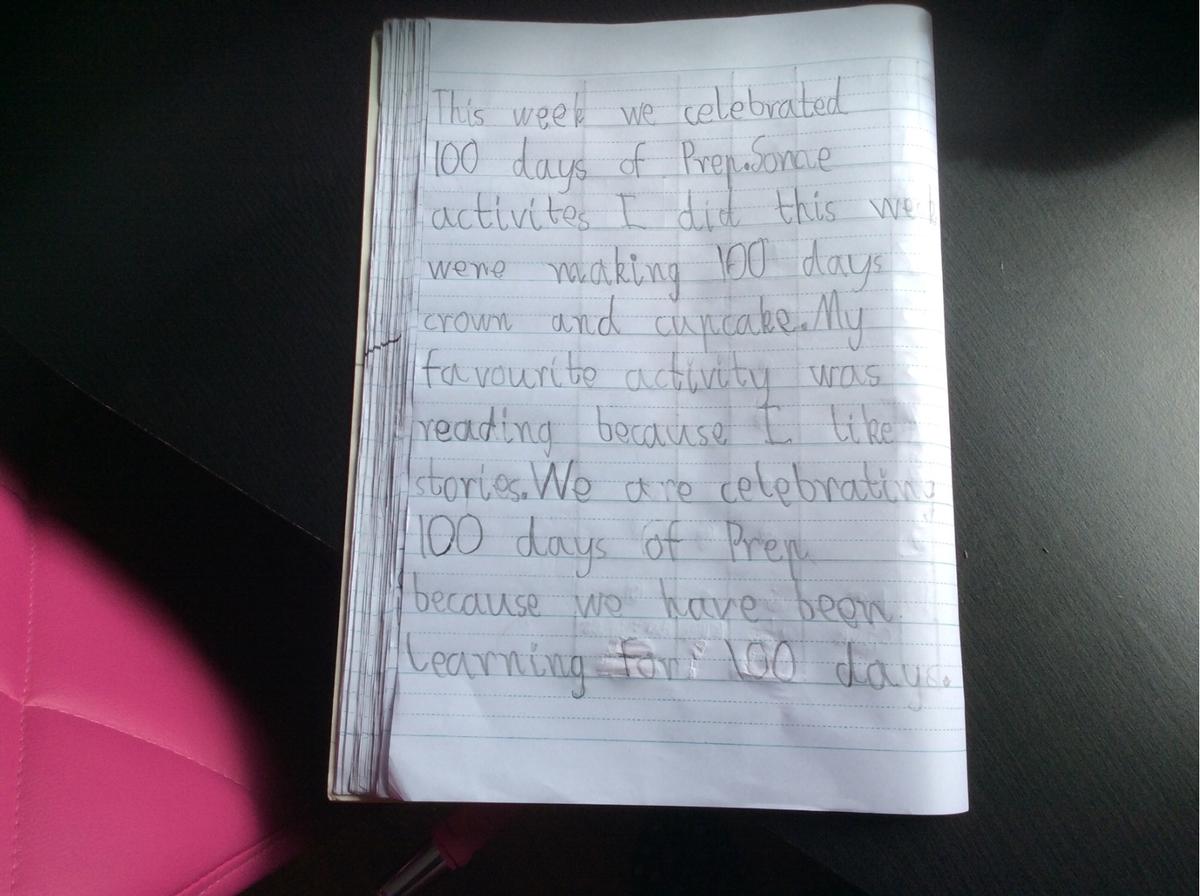 This week we celebrated
100 days of Prep.Some
activites I did this week
were making 100 days
crown and cupcake.My
favourite activity was
reading because I like
stories.We are celebrating
100 days of Prep
because we have been
learning for 100 days.